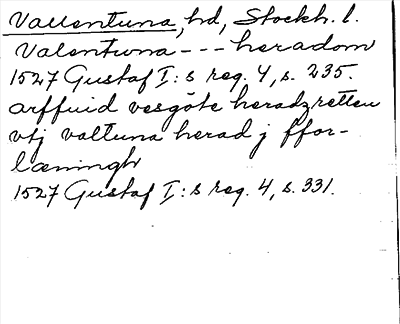 Vallentuna, hd, Stockh. l.
Valentwna --- heradom
1527 Gustaf I:s reg. 4, s. 235.
arffuid vesgöte heradzretten
vtj valtuna herad j ffor-
læningh
1527 Gustaf I:s reg. 4, s. 331.